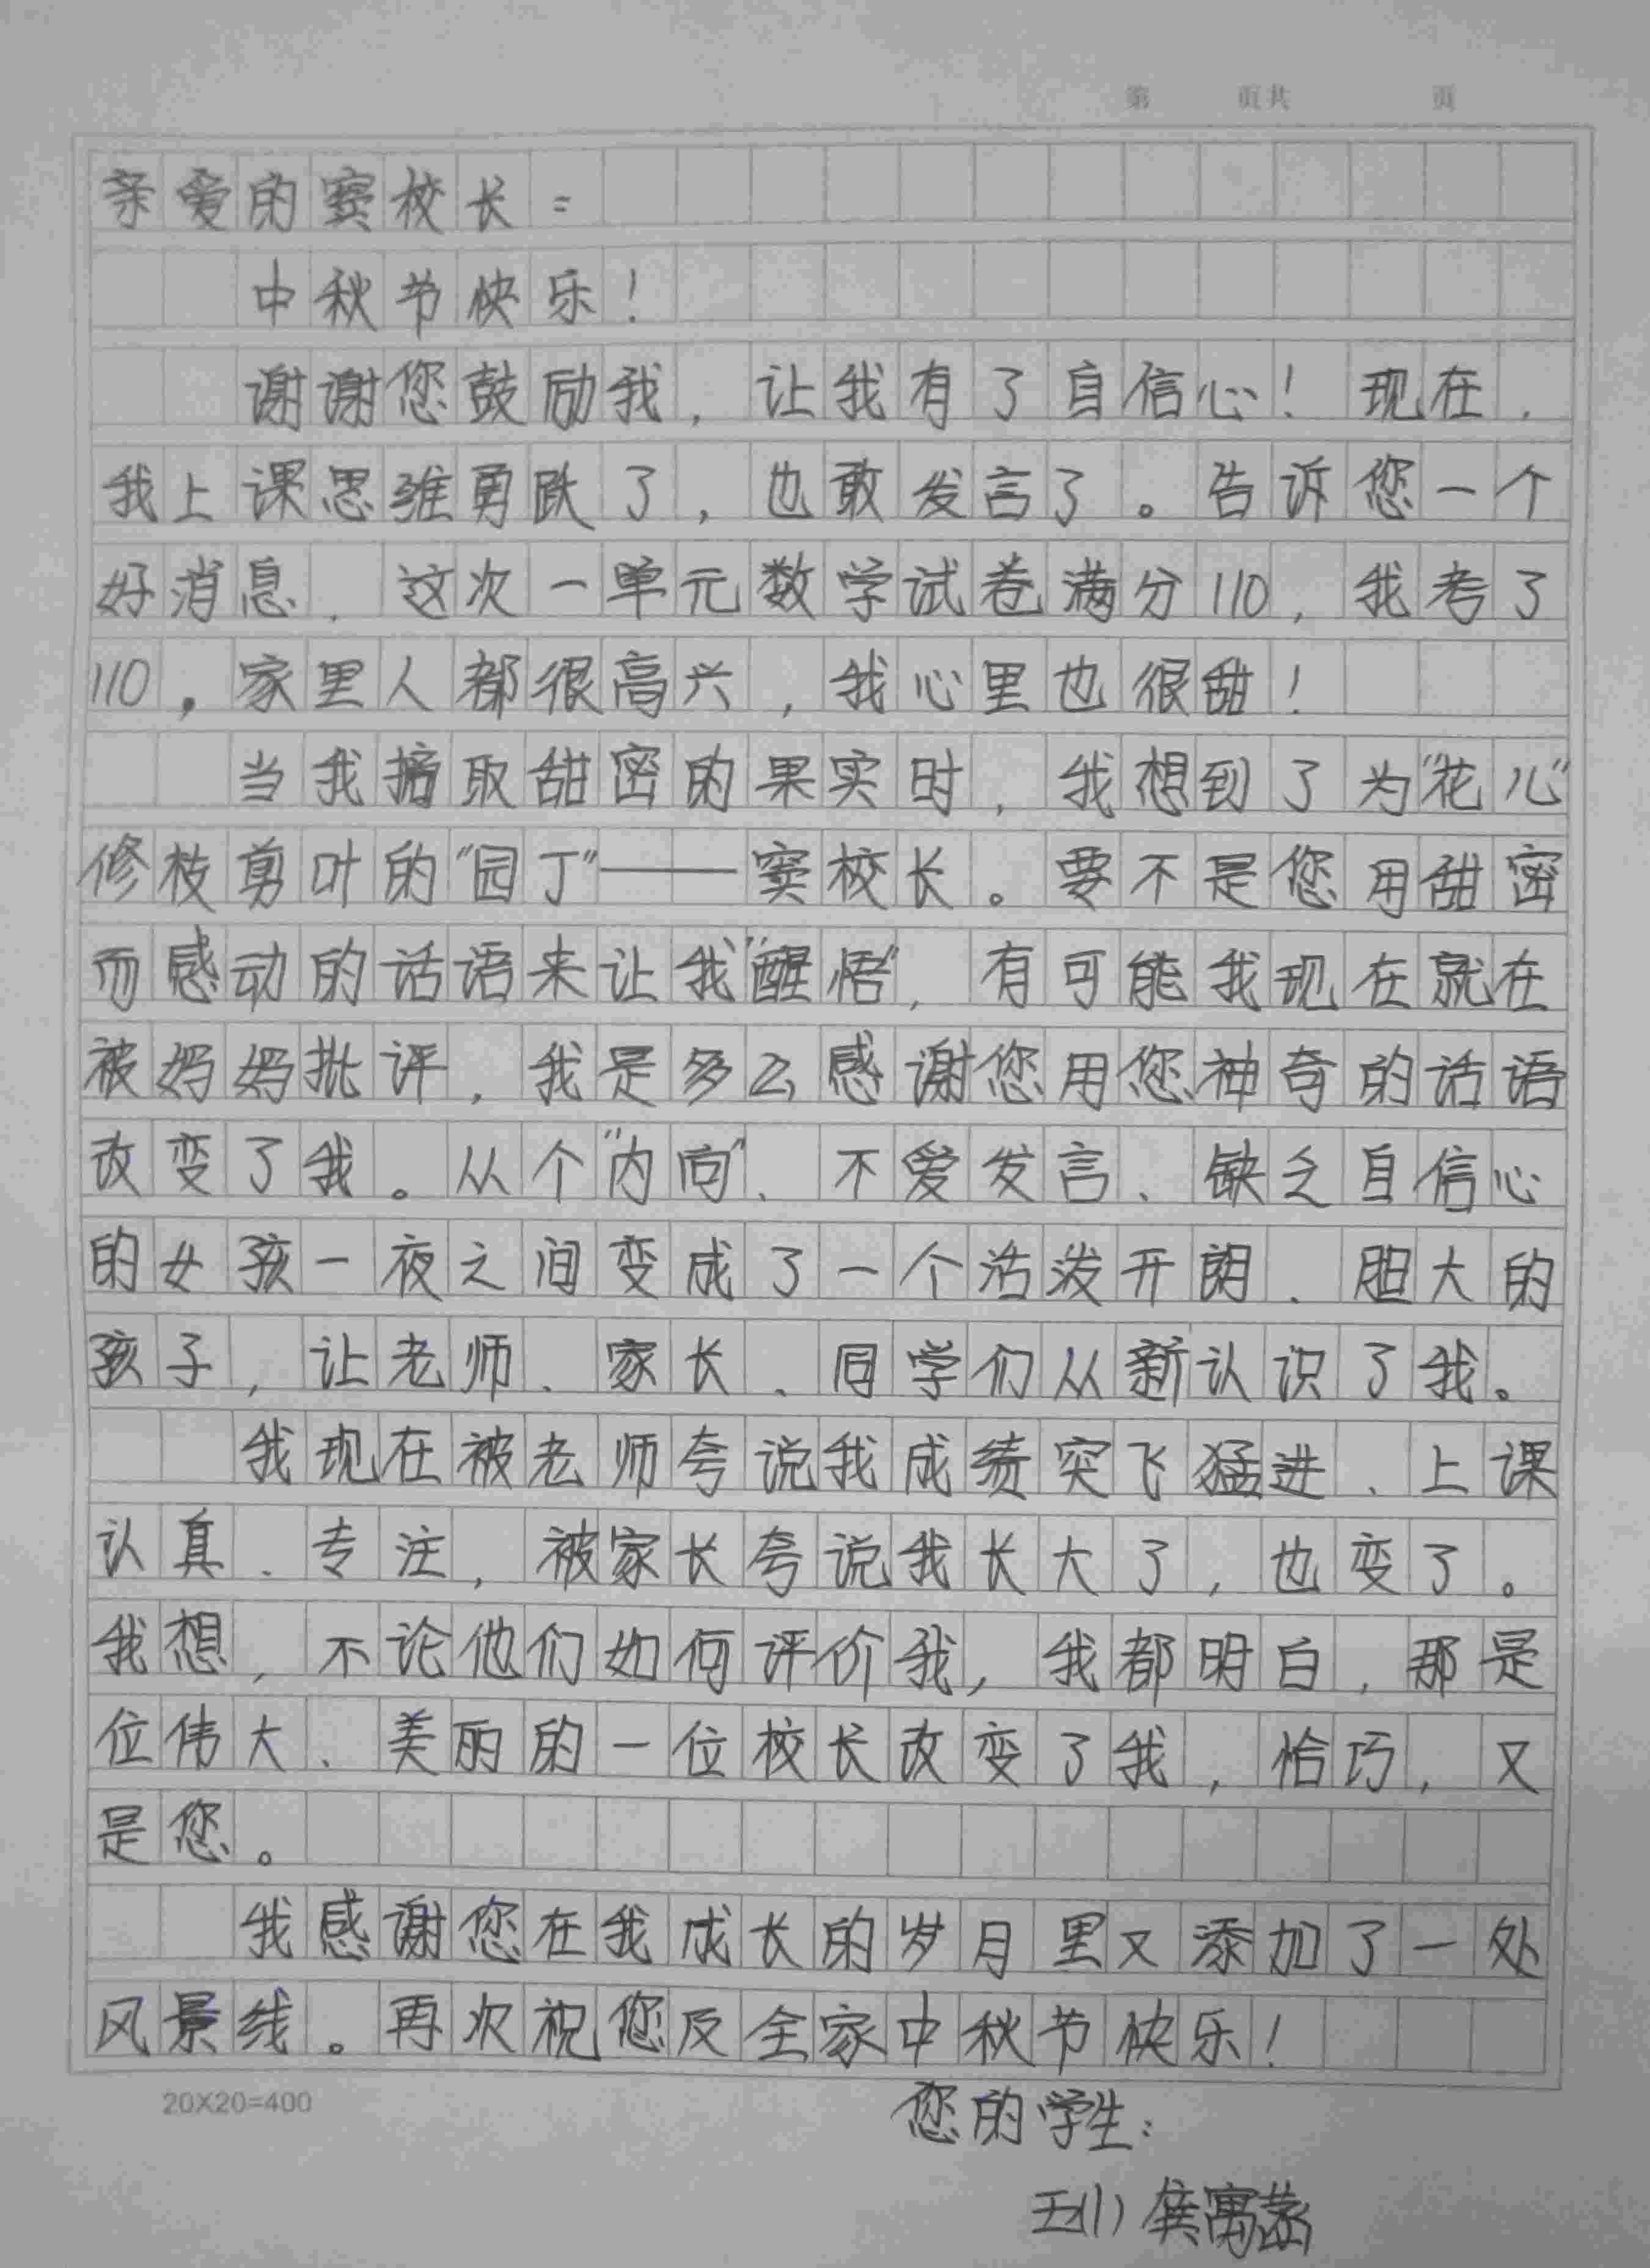 第 页共 页
亲爱的窦校长：
中秋节快乐！
谢谢您鼓励我，让我有了自信心！现在，
我上课思维勇跃了，也敢发言了。告诉您一个
好消息，这次一单元数学试卷满分110，我考了
110。家里人都很高兴，我心里也很甜！
当我摘取甜密的果实时，我想到了为"花儿"
修枝剪叶的"园丁"——窦校长。要不是您用甜密
而感动的话语来让我"醒悟"，有可能我现在就在
被妈妈批评，我是多么感谢您用您神奇的话语
改变了我。从个"内向"、不爱发言、缺乏自信心
的女孩一夜之间变成了一个活泼开朗、胆大的
孩子，让老师、家长、同学们从新认识了我。
我现在被老师夸说我成绩突飞猛进、上课
认真、专注，被家长夸说我长大了，也变了。
我想，不论他们如何评价我，我都明白，那是
位伟大、美丽的一位校长改变了我，恰巧，又
是您。
我感谢您在我成长的岁月里又添加了一处
风景线。再次祝您及全家中秋节快乐！
20X20=400
您的学生：
五(1) 寓